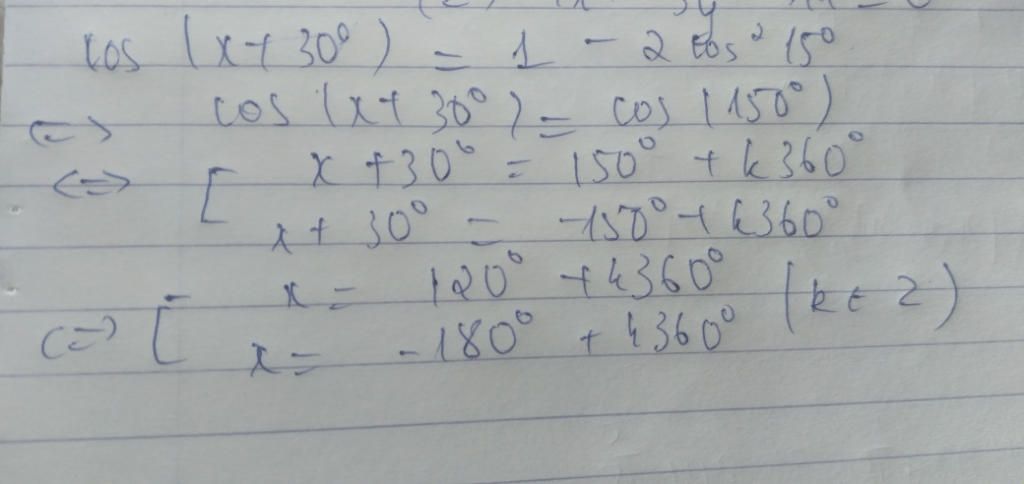 cos (x+30°) = 1 - 2 cos² 15°
<=> cos (x+ 30°) = cos (150°)
<=> [ x +30° = 150° + k360°
x + 30° = -150° + k360°
<=> [ x = 120° + k360° (k ∈ Z)
x = -180° + k360°